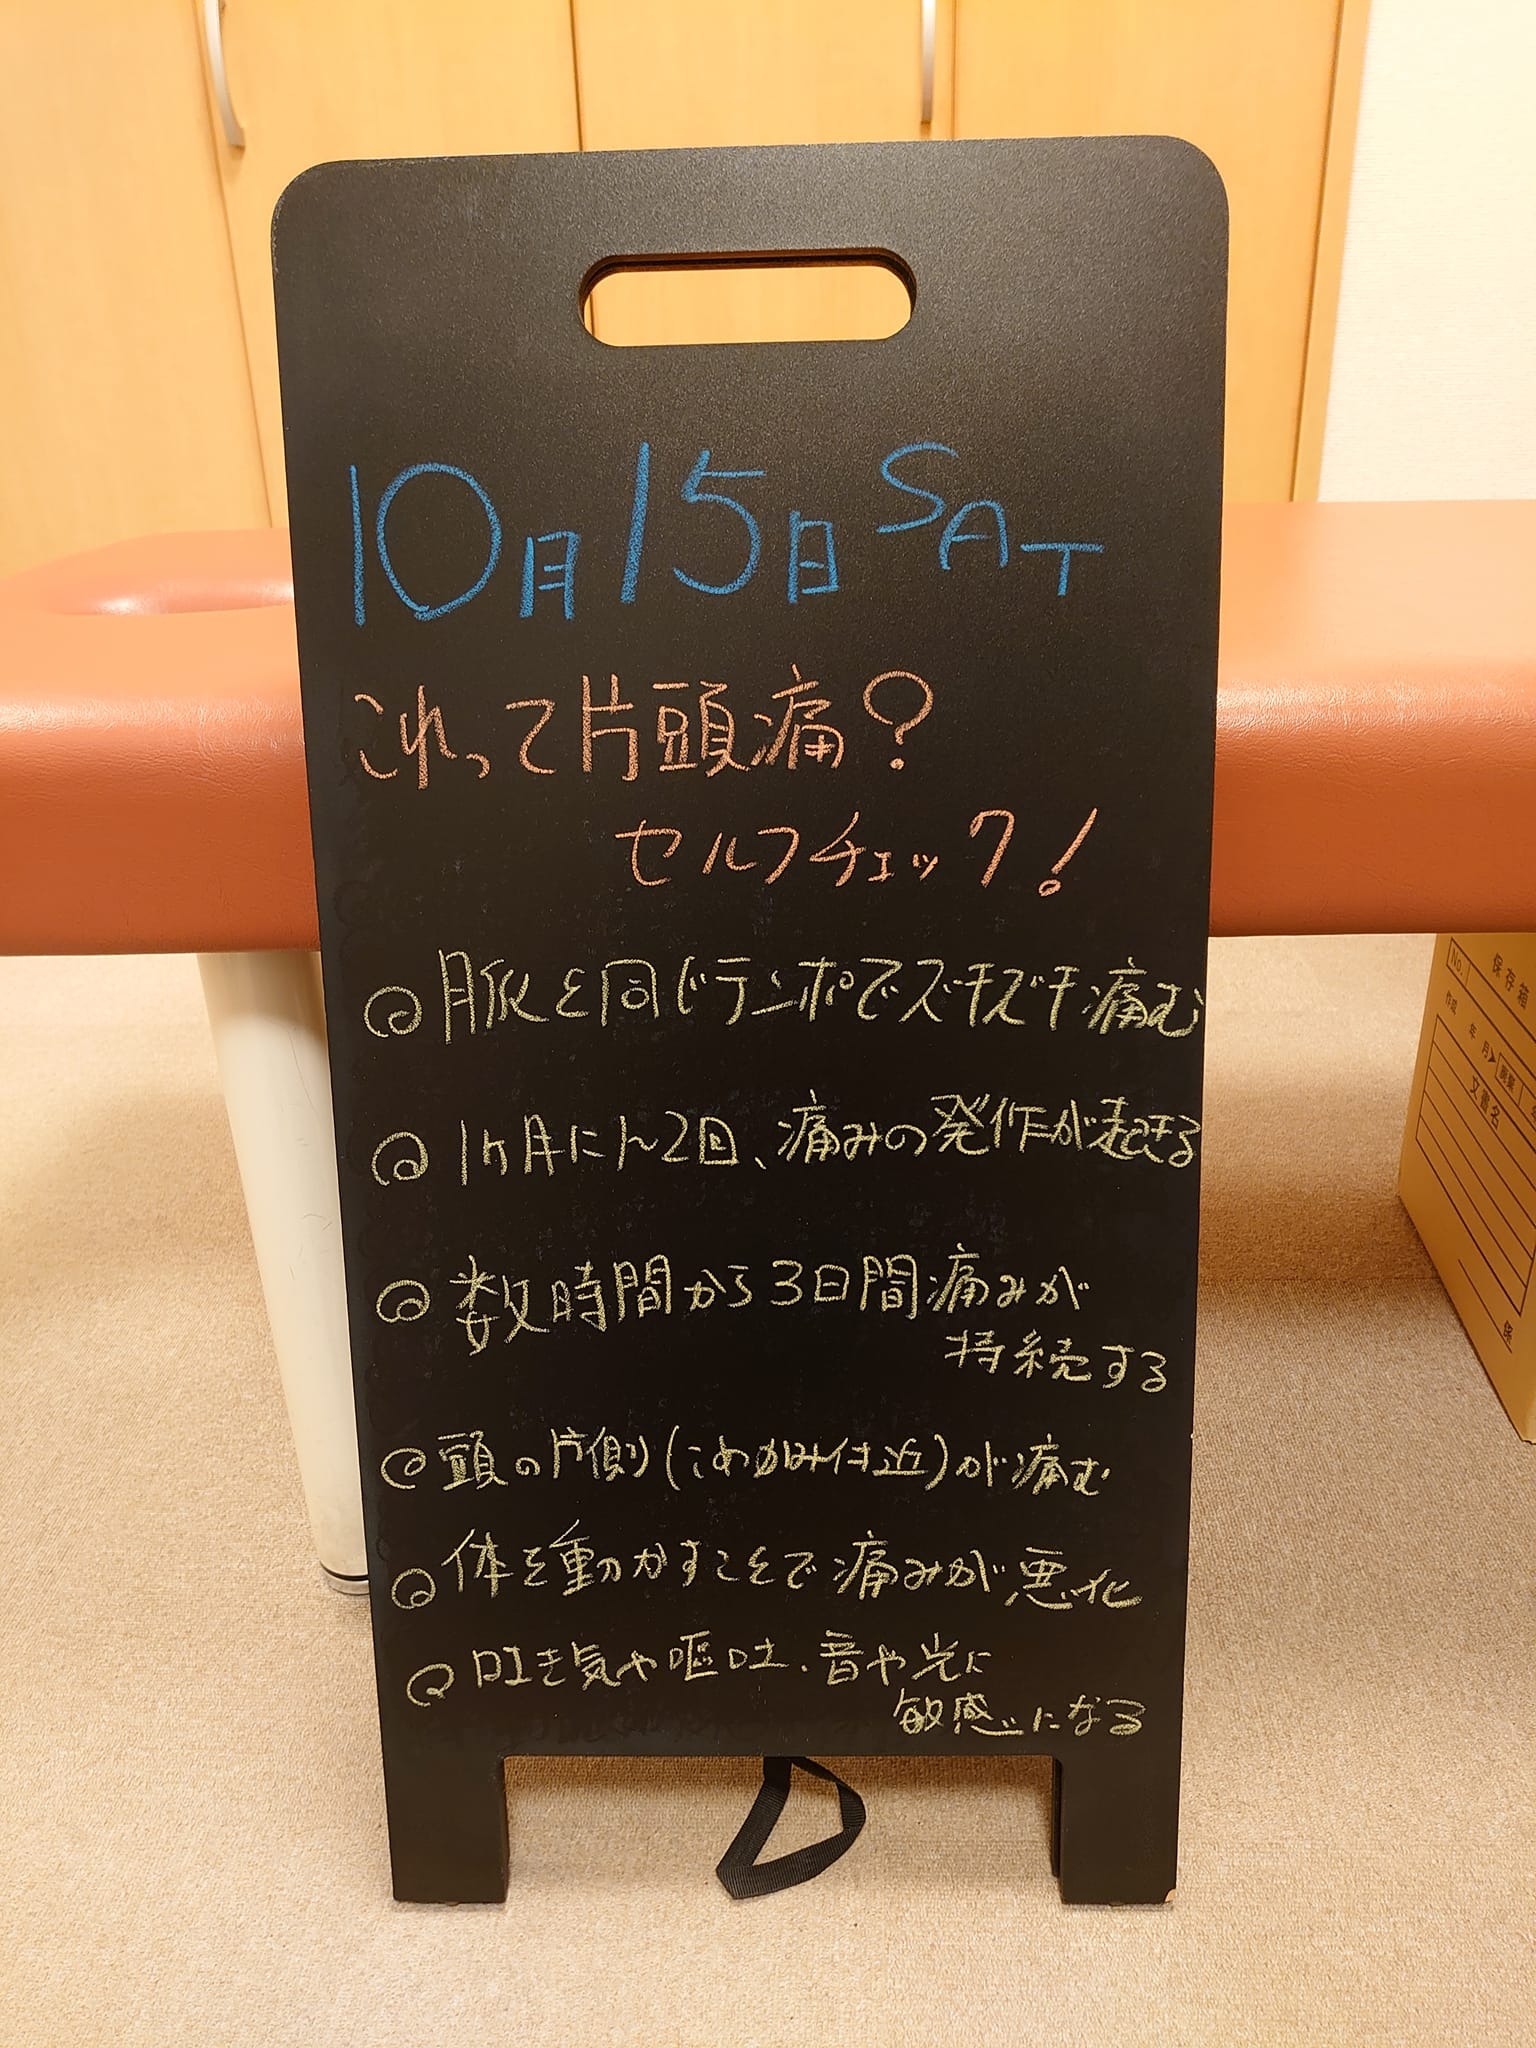 10月15日 SAT
これって片頭痛？
セルフチェック！
脈と同じテンポでズキズキ痛む
1ヶ月に1〜2回、痛みの発作が起きる
数時間から3日間痛みが
持続する
頭の片側(こめかみ付近)が痛む
体を動かすことで痛みが悪化
吐き気や嘔吐、音や光に
敏感になる
No.
保存箱
作成 年 月
廃棄
文書名
係